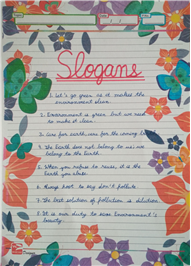 Slogans
1. Let's go green as it makes the
environment clean.
2. Environment is green but we need
to make it clean.
3. Care for earth, care for the coming
4. The Earth does not belong to us: we
belong to the Earth.
5. When you refuse to reuse, it is the
Earth you abuse.
6. Always hoot to say don't pollute.
7. The best solution of pollution is dilution.
8. It is our duty to save Environment's
beauty.